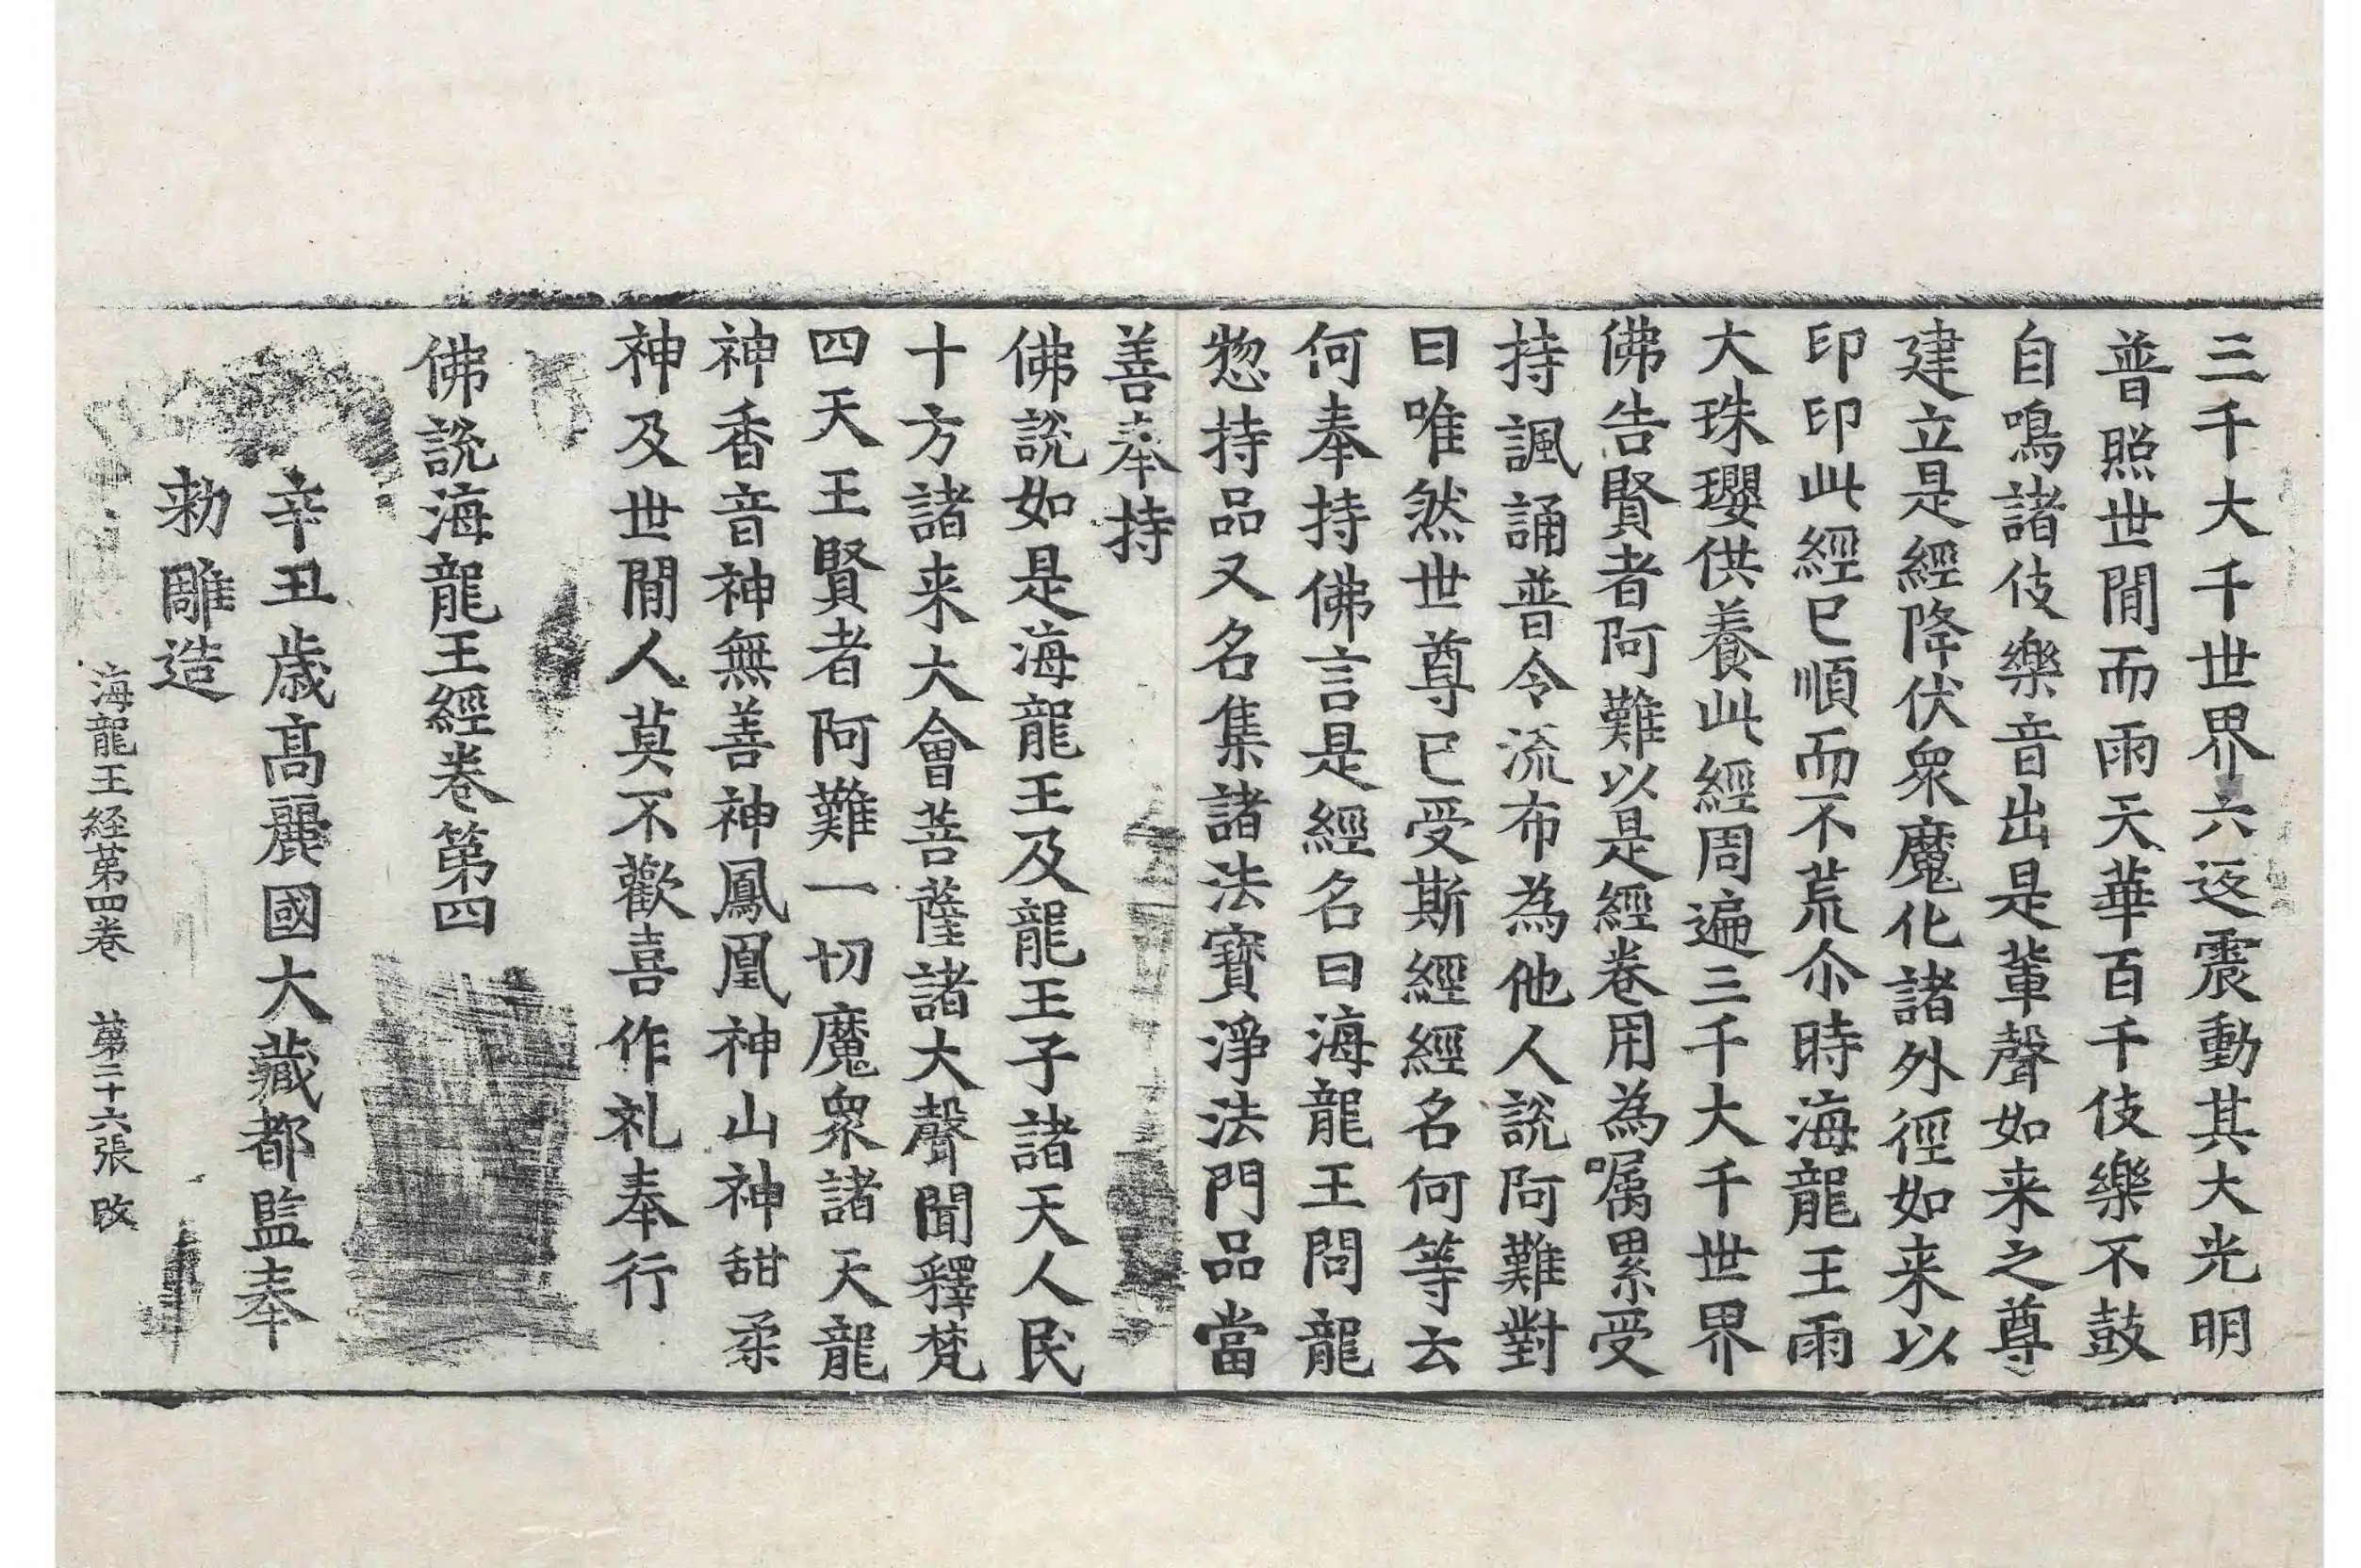 三千大千世界六返震動其大光明
普照世間而雨天華百千伎樂不鼓
自鳴諸伎樂音出是軰聲如来之尊
建立是經降伏衆魔化諸外徑如来以
印印此經已順而不荒尒時海龍王雨
大珠瓔供養此經周遍三千大千世界
佛告賢者阿難以是經卷用為嘱累受
持諷誦普令流布為他人說阿難對
曰唯然世尊已受斯經經名何等云
何奉持佛言是經名曰海龍王問龍
惣持品又名集諸法寶淨法門品當
善奉持
佛說如是海龍王及龍王子諸天人民
十方諸来大會菩薩諸大聲聞釋梵
四天王賢者阿難一切魔衆諸天龍
神香音神無善神鳳凰神山神甜柔
神及世間人莫不歡喜作礼奉行
佛說海龍王經卷第四
辛丑歳高麗國大藏都監奉
勑雕造
海龍王経苐四卷 苐二十六張 改